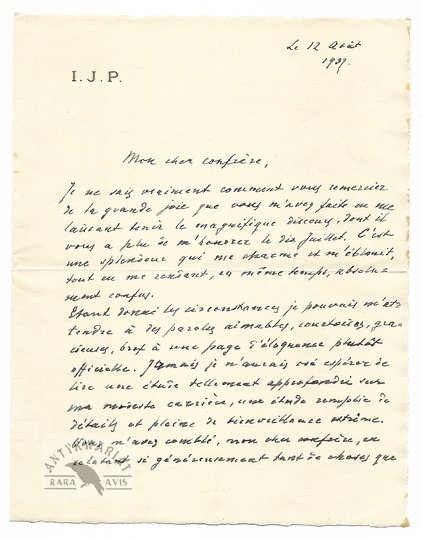 Le 12 Août
1937.
I. J. P.
Mon cher confrère,
Je ne sais vraiment comment vous remercier
de la grande joie que vous m'avez faite en me
laissant tenir le magnifique discours, dont il
vous a plu de m'honorer le dix Juillet. C'est
une splendeur qui me charme et m'éblouit,
tout en me rendant, en même temps, absolu-
ment confus.
Etant donné les circonstances je pouvais m'at-
tendre à des paroles aimables, courtoises, gra-
cieuses, bref à une page d'éloquence plutôt
officielle. Jamais je n'aurais osé espérer de
lire une étude tellement approfondie sur
ma modeste carrière, une étude remplie de
détails et pleine de bienveillance extrême.
Vous m'avez comblé, mon cher confrère, en
relatant si généreusement tant de choses que
ANTYKWARIAT
RARA AVIS